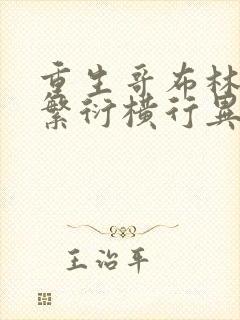 重生哥布林
繁衍横行异
王治平